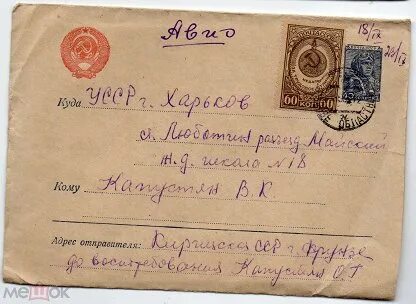 Авио
18/IV
60 КОП 60
Куда УССР г. Харьков
ст. Люботин разъезд Майский
ж.д. школа N 18
Кому Капустян В.К.
Адрес отправителя: Киргизская ССР г. Фрунзе
до востребования Капустян
мешок